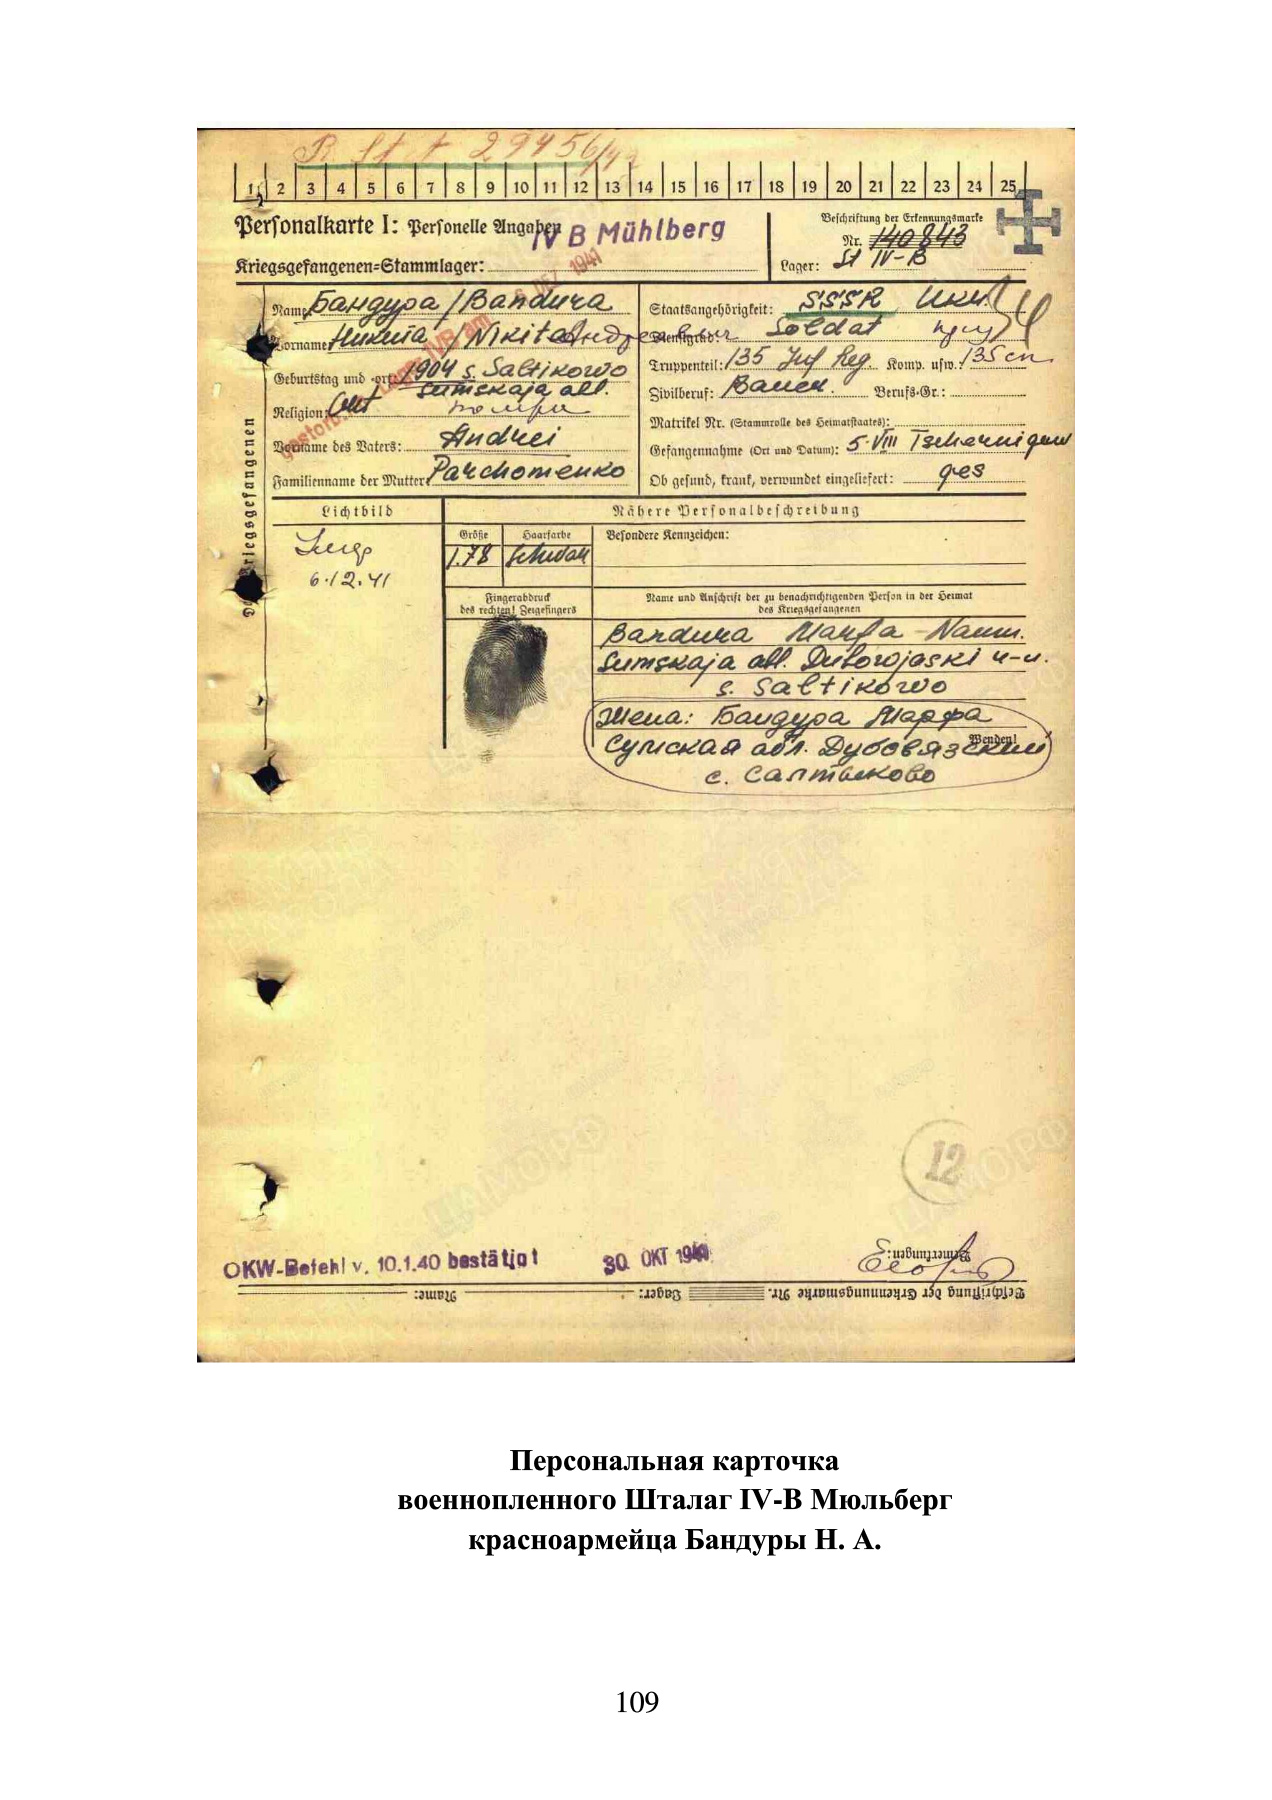 B St A 29456/42
1 2 3 4 5 6 7 8 9 10 11 12 13 14 15 16 17 18 19 20 21 22 23 24 25
Personalkarte I: Personelle Angaben
IV B Mühlberg
Kriegsgefangenen-Stammlager:
Beschriftung der Erkennungsmarke
Nr. 140843
Lager: St IV-B
6. DEZ. 1941
gestorben Lager IVB am
Name: Бандура / Bandura
Vorname: Никита / Nikita Андреевич
Geburtstag und -ort: 1904 s. Saltikowo
Sumskaja obl.
Religion:
Vorname des Vaters: Andrei
Familienname der Mutter: Parchomenko
Staatsangehörigkeit: SSSR Ukr.
Dienstgrad: Soldat
Truppenteil: 135 Inf Reg. Komp. usw.: 135 сп
Zivilberuf: Bauer. Berufs-Gr.:
Matrikel Nr. (Stammrolle des Heimatstaates):
Gefangennahme (Ort und Datum): 5.VIII Tschernigow
Ob gesund, krank, verwundet eingeliefert: ges
Des Kriegsgefangenen
Lichtbild
6.12.41
Nähere Personalbeschreibung
Größe Haarfarbe Besondere Kennzeichen:
1.78 schwarz
Fingerabdruck
des rechten! Zeigefingers
Name und Anschrift der zu benachrichtigenden Person in der Heimat
des Kriegsgefangenen
Bandura Marfa Naum.
Sumskaja obl. Dubowjaski
s. Saltikowo
Жена: Бандура Марфа
Сумская обл. Дубовязский
с. Салтыково
Wenden!
12
OKW-Befehl v. 10.1.40 bestätigt
30. OKT 1941
Bemerkungen:
Beschriftung der Erkennungsmarke Nr. Lager: Name:
Персональная карточка
военнопленного Шталаг IV-B Мюльберг
красноармейца Бандуры Н. А.
109